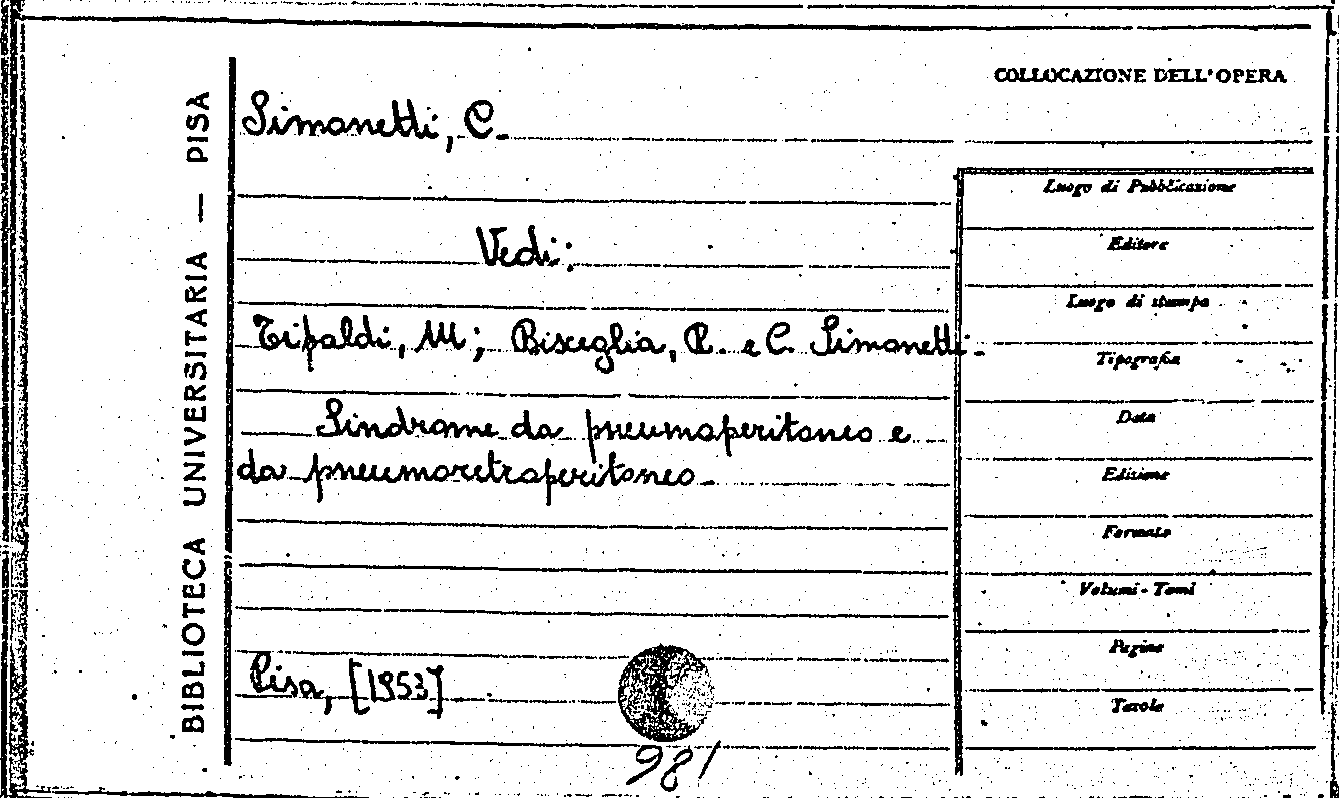 COLLOCAZIONE DELL'OPERA
BIBLIOTECA UNIVERSITARIA — PISA
Simonetti, C.
Vedi:
Tipaldi, M; Bisceglia, R. e C. Simonetti.
Sindrome da pneumoperitoneo e
da pneumoretroperitoneo.
Pisa, [1953]
981
Luogo di Pubblicazione
Editore
Luogo di stampa
Tipografia
Data
Edizione
Formato
Volumi - Tomi
Pagine
Tavole